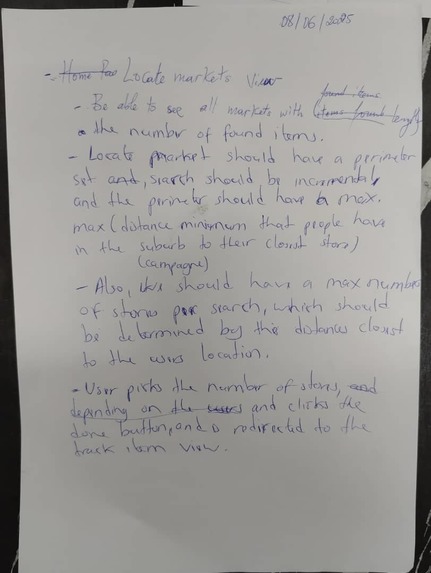 08/06/2025
- Home Locate markets View
- Be able to see all markets with found items
the number of found items.
- Locate market should have a perimeter
set and, search should be incremental,
and the perimeter should have a max.
max (distance minimum that people have
in the suburb to their closest store)
(campagne)
- Also, we should have a max number
of stores per search, which should
be determined by the distance closest
to the users location.
- User picks the number of stores, and
depending on the users and clicks the
done button, and is redirected to the
track item view.